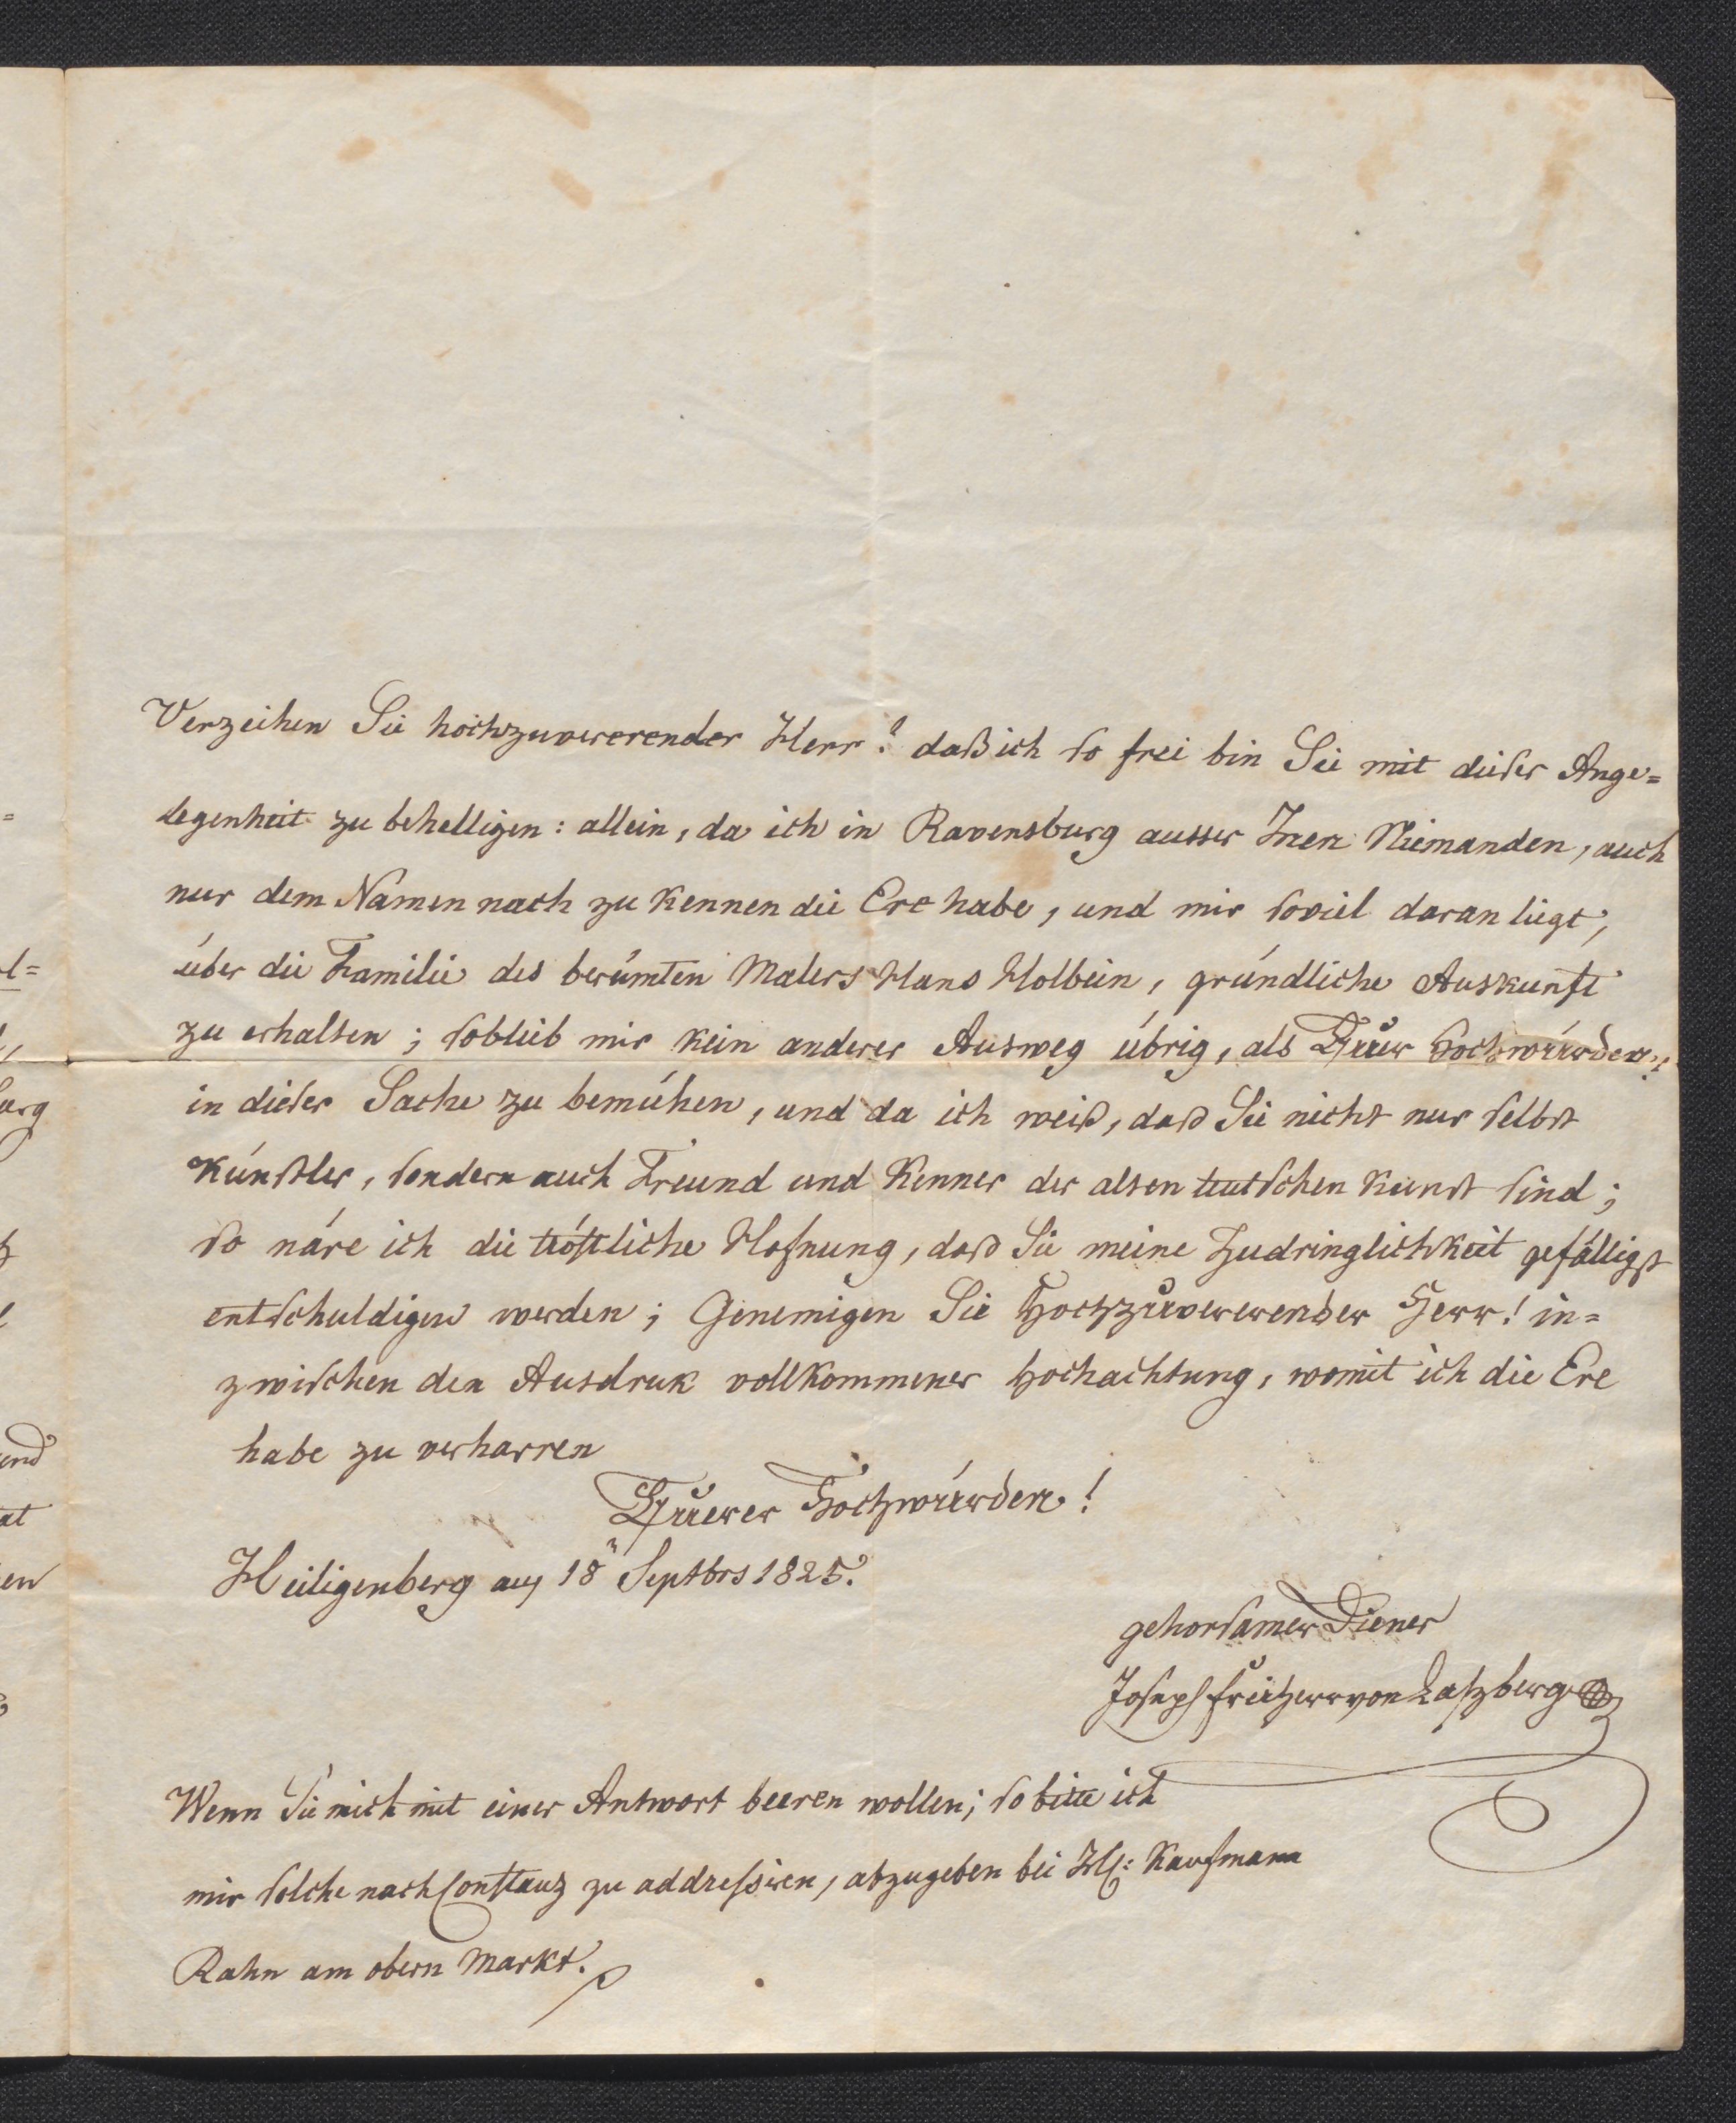 Verzeihen Sie hochzuvererender Herr! daß ich so frei bin Sie mit dieser Ange=
legenheit zu behelligen: allein, da ich in Ravensburg ausser Inen Niemanden, auch
nur dem Namen nach zu kennen die Ere habe, und mir soviel daran liegt,
über die Familie des berümten Malers Hans Holbein, gründliche Auskunft
zu erhalten; so blieb mir kein anderer Ausweg übrig, als Euer Hochwürden!
in dieser Sache zu bemühen, und da ich weiß, daß Sie nicht nur selbst
Künstler, sondern auch Freund und Kenner der alten teutschen Kunst sind;
so näre ich die tröstliche Hofnung, daß Sie meine Zudringlichkeit gefälligst
entschuldigen werden; Genemigen Sie Hochzuvererender Herr! in=
zwischen den Ausdruk vollkommener Hochachtung, womit ich die Ere
habe zu verharren
Euerer Hochwürden!
Heiligenberg am 18n Septbrs 1825.
gehorsamer Diener
Joseph Freiherr von Laßberg
Wenn Sie mich mit einer Antwort beeren wollen; so bitte ich
mir solche nach Constanz zu addressiren, abzugeben bei Hℓ: Kaufmann
Rahn am obern Markt.
l=
urg
und
at
en